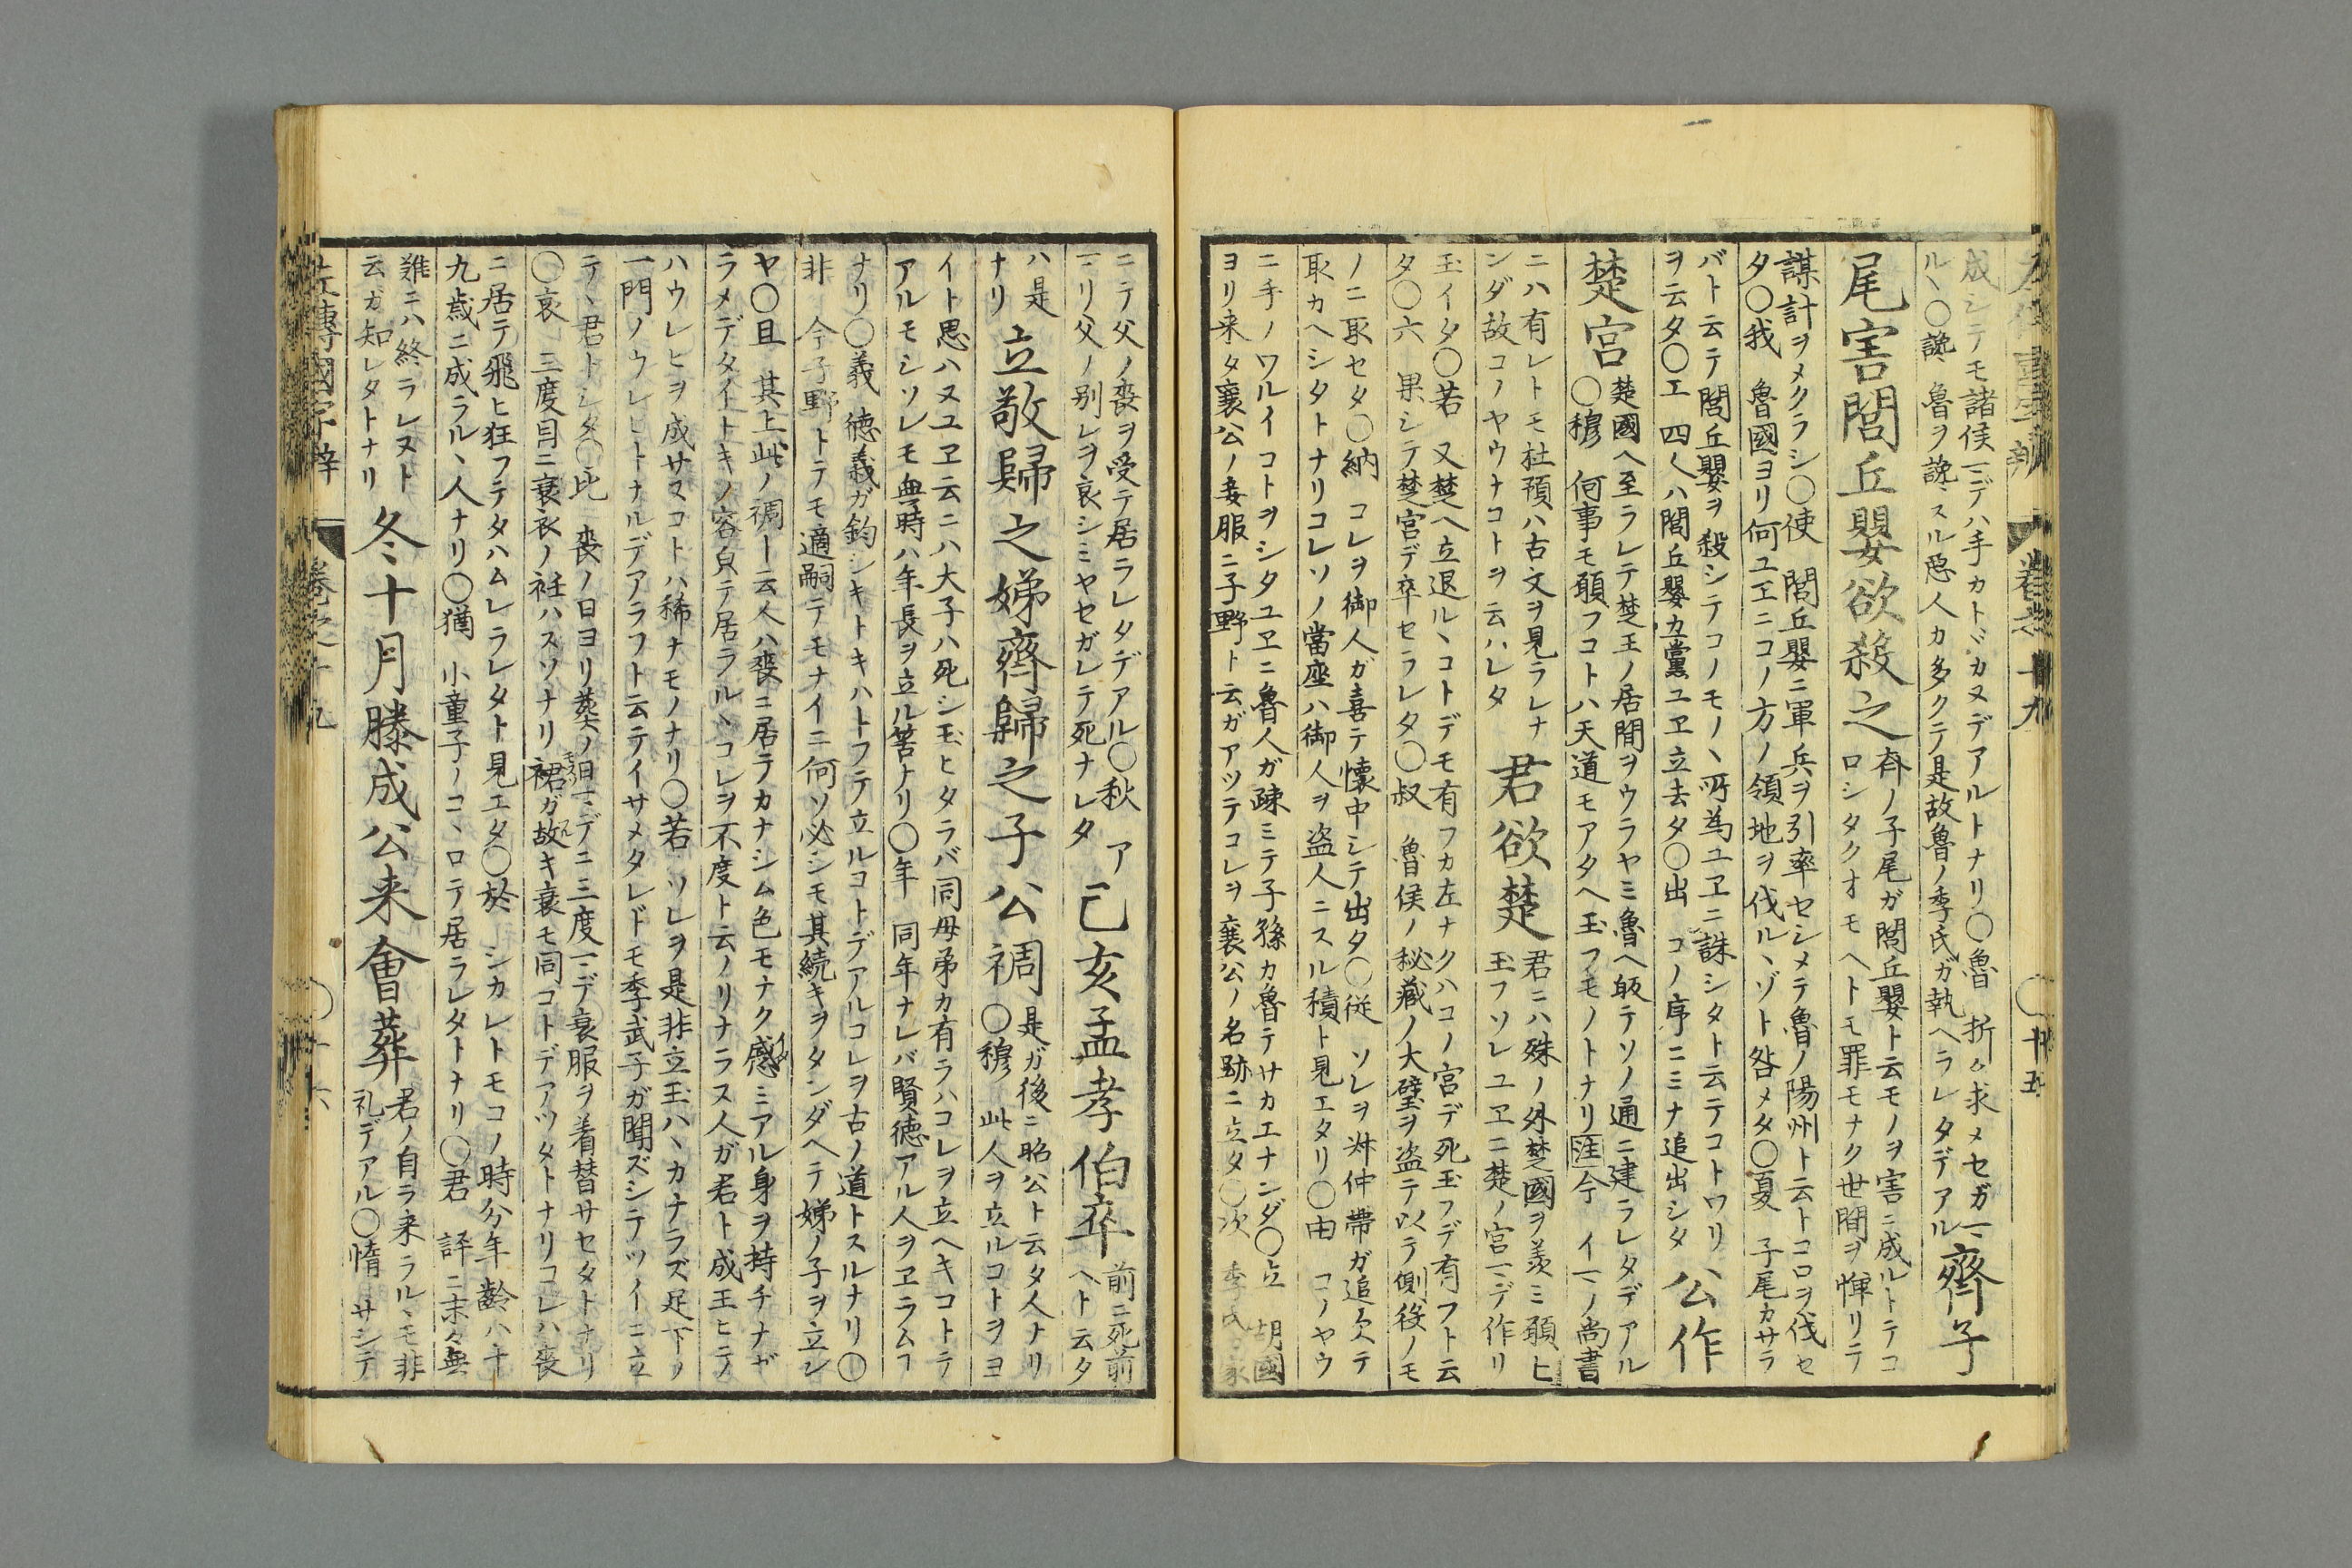 成シテモ諸侯ニデハ手カトヾカヌデアルトナリ〇魯 折々求メセガニ
ルヽ〇讒 魯ヲ讒スル惡人カ多クテ是故魯ノ季氏ガ執ヘラレタデアル
齊子
尾害閭丘嬰欲殺之
斉ノ子尾ガ閭丘嬰ト云モノヲ害ニ成ルトテコ
ロシタクオモヘトモ罪モナク世間ヲ憚リテ
謀計ヲメクラシ〇使 閭丘嬰ニ軍兵ヲ引率セシメテ魯ノ陽州ト云トコロヲ伐セ
タ〇我 魯國ヨリ何ユヱニコノ方ノ領地ヲ伐ルヽゾト咎メタ〇夏 子尾カサラ
バト云テ閭丘嬰ヲ殺シテコノモノヽ所為ユヱニ誅シタト云テコトワリ
ヲ云タ〇工 四人ハ閭丘嬰カ黨ユヱ立去タ〇出 コノ序ニミナ追出シタ
公作
楚宮
楚國ヘ至ラレテ楚王ノ居間ヲウラヤミ魯ヘ皈テソノ通ニ建ラレタデアル
〇穆 何事モ願フコトハ天道モアタヘ玉フモノトナリ注今 イマノ尚書
ニハ有レトモ杜預ハ古文ヲ見ラレナ
ンダ故コノヤウナコトヲ云ハレタ
君欲楚
君ニハ殊ノ外楚國ヲ羨ミ願ヒ
玉フソレユヱニ楚ノ宮マデ作リ
玉イタ〇若 又楚ヘ立退ルヽコトデモ有フカ左ナクハコノ宮デ死玉フデ有フト云
タ〇六 果シテ楚宮デ卒セラレタ〇叔 魯侯ノ秘蔵ノ大璧ヲ盗テ以テ側役ノモ
ノニ取セタ〇納 コレヲ御人ガ喜テ懐中シテ出タ〇従 ソレヲ叔仲帯ガ追欠テ
取カヘシタトナリコレソノ當座ハ御人ヲ盗人ニスル積ト見エタリ〇由 コノヤウ
ニ手ノワルイコトヲシタユヱニ魯人ガ疎ミテ子孫カ魯テサカエナンダ〇立 胡國
ヨリ来タ襄公ノ妾服ニ子野ト云ガアツテコレヲ襄公ノ名跡ニ立タ〇次 季氏
ニテ父ノ喪ヲ受テ居ラレタデアル〇秋 ア
マリ父ノ別レヲ哀シミヤセガレテ死ナレタ
己亥孟孝伯卒
前ニ死前
ヘト云タ
ハ是
ナリ
立敬歸之娣齊歸之子公裯
是ガ後ニ昭公ト云タ人ナリ
〇穆 此人ヲ立ルコトヲヨ
イト思ハヌユヱ云ニハ大子ハ死シ玉ヒタラバ同母弟カ有ラハコレヲ立ヘキコトテ
アルモシソレモ無時ハ年長ヲ立ル筈ナリ〇年 同年ナレバ賢徳アル人ヲヱラムフ
ナリ〇義 徳義ガ鈞シキトキハトフテ立ルコトデアルコレヲ古ノ道トスルナリ〇
非 今子野トテモ適嗣テモナイニ何ソ必シモ其続キヲタンダヘテ娣ノ子ヲ立レ
ヤ〇且 其上此ノ裯ト云人ハ喪ニ居テカナシム色モナク感ミアル身ヲ持チナガ
ラメデタイトキノ容貞テ居ラルヽコレヲ不度ト云ノリナラス人ガ君ト成玉ヒテノ
ハウレヒヲ成サヌコトハ稀ナモノナリ〇若 ソレヲ是非立玉ハヽカナラズ足下ノ
一門ノウレヒトナルデアラフト云テイサメタレドモ季武子ガ聞ズシテツイニ立
テヽ君トシタ〇比 喪ノ日ヨリ葬ノ日マデニ三度マデ衰服ヲ着替サセタトナリ
〇衰 三度目ニ衰衣ノ衽ハスソナリ裙ガ故キ衰モ同コトデアツタトナリコレハ喪
ニ居テ飛ヒ狂フテタハムレラレタト見エタ〇於 シカレトモコノ時分年齢ハ十
九歳ニ成ラルヽ人ナリ〇猶 小童子ノコヽロテ居ラレタトナリ〇君 評ニ末々無
難ニハ終ラレヌト
云ガ知レタトナリ
冬十月滕成公来會葬
君ノ自ラ来ラルヽモ非
礼デアル〇惰 サシテ
左傳國字辯
巻之十九